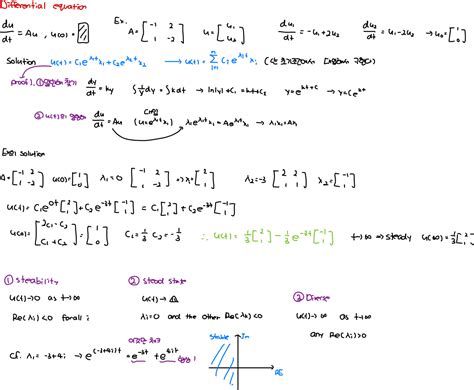 Differential equation
du/dt = Au, u(0) = Ex. A = [-1 2; 1 -2] u = [u₁; u₂] du₁/dt = -u₁+2u₂ du₂/dt = u₁-2u₂ → u(0) = [1; 0]
Solution u(t) = C₁e^{λ₁t}x₁ + C₂e^{λ₂t}x₂ → u(t) =
proof) dy/dt = ky ∫1/y dy = ∫k dt → ln|y| + C₁ = kt + C₂ y = e^{kt+C} → y = Ce^{kt}
② du/dt = Au → λᵢxᵢ = Axᵢ
Ex) solution
A = [-1 2; 1 -2] u(0) = [1; 0] λ₁ = 0 [-1 2; 1 -2] → x₁ = [2; 1] λ₂ = -3 [2 2; 1 1] x₂ = [-1; 1]
u(t) = C₁e^{0t}[2; 1] + C₂e^{-3t}[-1; 1] = C₁[2; 1] + C₂e^{-3t}[-1; 1]
u(0) = [2C₁-C₂; C₁+C₂] = [1; 0] C₁ = 1/3 C₂ = -1/3 ∴ u(t) = 1/3[2; 1] - 1/3 e^{-3t}[-1; 1] t→∞ ⇒ steady u(∞) = 1/3[2; 1]
① steability
u(t)→0 as t→∞
Re(λᵢ)<0 for all i
② stead state
u(t) →
λᵢ=0 and the other Re(λᵢ)<0
③ Diverse
u(t)→∞ as t→∞
any Re(λᵢ)>0
cf. λ₁ = -3+4i → e^{(-3+4i)t} = e^{-3t} e^{4it}
stable Im
Re